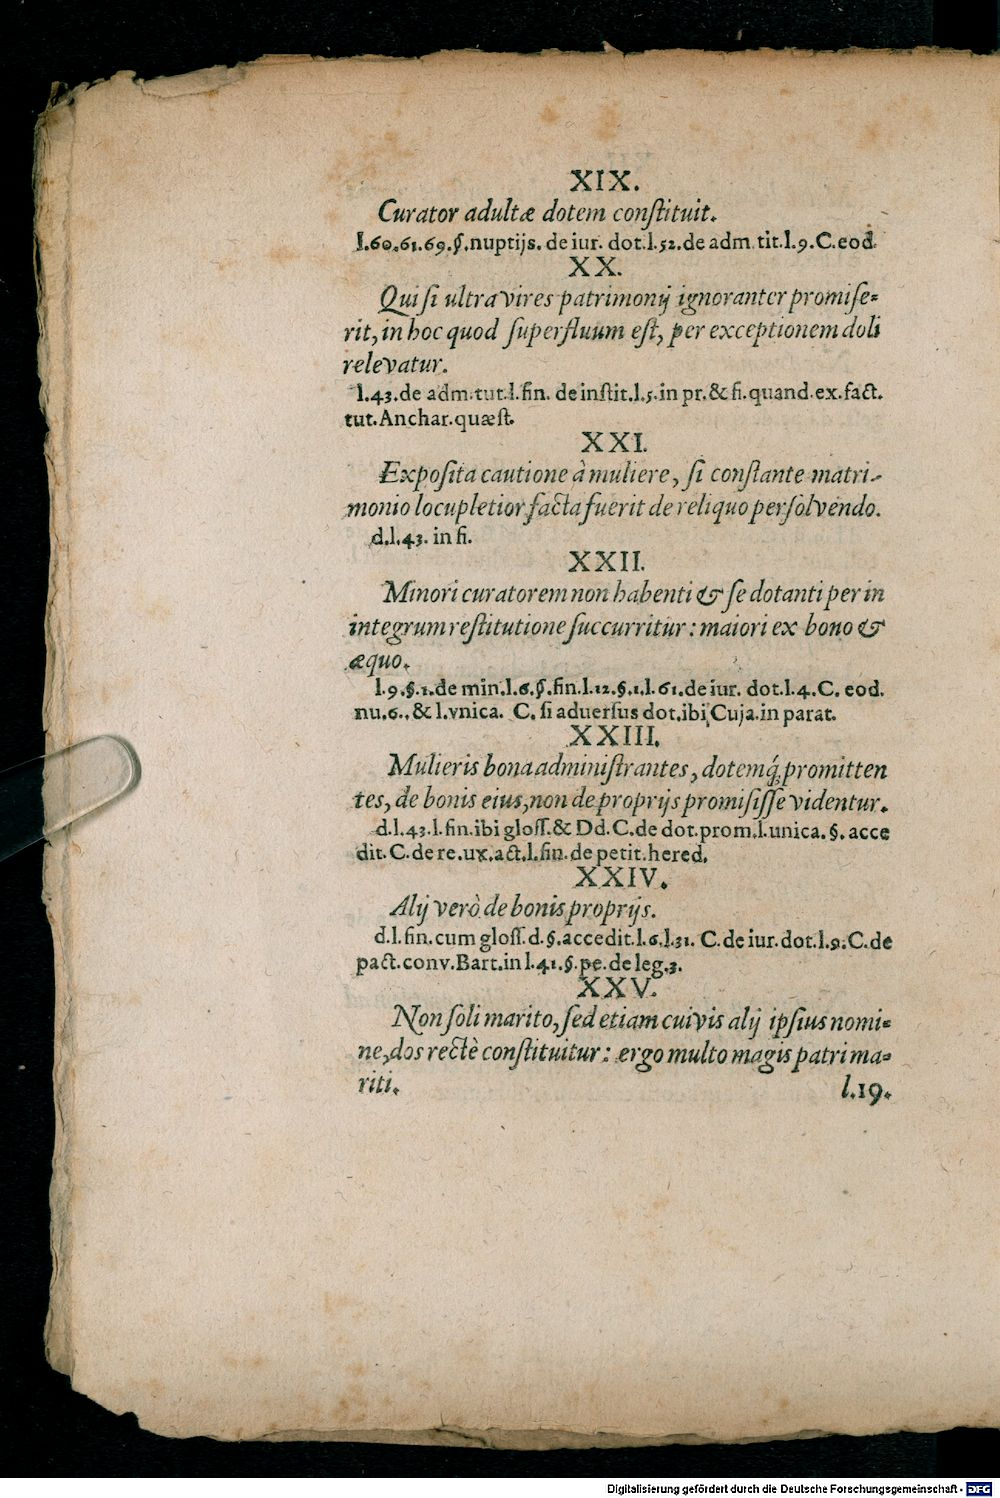 XIX.
Curator adultæ dotem conſtituit.
l.60.61.69.§.nuptijs. de iur. dot.l.52.de adm. tit.l.9.C.eod.
XX.
Qui ſi ultra vires patrimonij ignoranter promiſe=
rit, in hoc quod ſuperfluum eſt, per exceptionem doli
relevatur.
l.43.de adm.tut.l.fin. de inſtit.l.5.in pr.& fi.quand.ex.fact.
tut.Anchar.quæſt.
XXI.
Expoſita cautione à muliere, ſi conſtante matri-
monio locupletior facta fuerit de reliquo perſolvendo.
d.l.43. in fi.
XXII.
Minori curatorem non habenti & ſe dotanti per in
integrum reſtitutione ſuccurritur: maiori ex bono &
æquo.
l.9.§.1.de min.l.6.§.fin.l.12.§.1.l.61.de iur. dot.l.4.C. eod.
nu.6.,& l.vnica. C. ſi aduerſus dot.ibi Cuja.in parat.
XXIII.
Mulieris bona adminiſtrantes, dotemq́; promitten
tes, de bonis eius, non de proprijs promiſiſſe videntur.
d.l.43.l.fin.ibi gloſſ.& Dd.C.de dot.prom.l.unica.§. acce
dit.C.de re.ux.act.l.fin.de petit.hered.
XXIV.
Alij verò de bonis proprijs.
d.l.fin.cum gloſſ.d.§.accedit.l.6.l.31. C.de iur.dot.l.9.C.de
pact.conv.Bart.in l.41.§.pe.de leg.3.
XXV.
Non ſoli marito, ſed etiam cuivis alij ipſius nomi=
ne, dos rectè conſtituitur: ergo multo magis patri ma=
riti.
l.19.
Digitalisierung gefördert durch die Deutsche Forschungsgemeinschaft - DFG